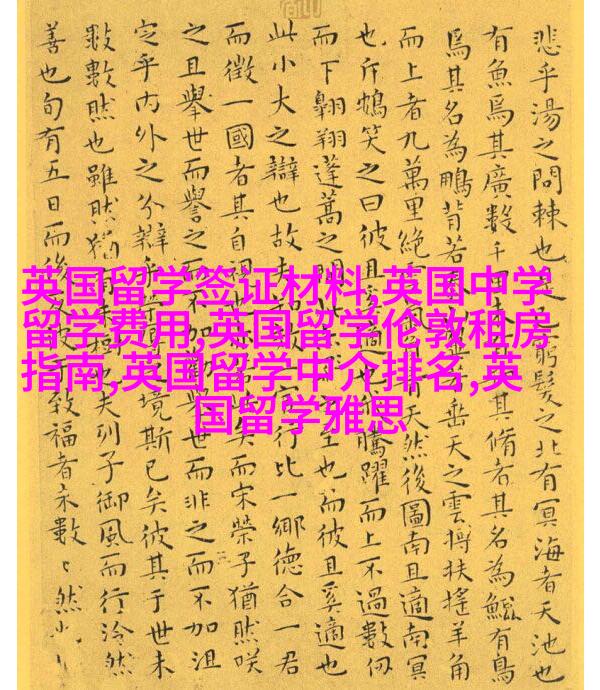 悲乎湯之問棘也是 窮髮之北有冥海者天池也
有魚焉其廣數千 其脩者其名為鯤有鳥
焉其名為鵬背若 垂天之雲摶扶搖羊角
而上者九萬里絕 天然後圖南且適南冥
也斥鴳笑之曰彼且奚適也 騰躍而上不過數仞
而下翱翔蓬蒿之間 至也而彼且奚適也
此小大之辯也故夫 一官行比一鄉德合一君
而徵一國者其自視也 矣而宋榮子猶然咲
之且舉世而譽之而不加勸舉世而非之而不加沮
定乎內外之分辯乎 境斯已矣彼其于世未
數數然也雖然猶有未樹也夫列子御風而行泠然
善也旬有五日而後反彼 致福者未數〻然也
英国留学签证材料,英国中学
留学费用,英国留学伦敦租房
指南,英国留学中介排名,英
国留学雅思